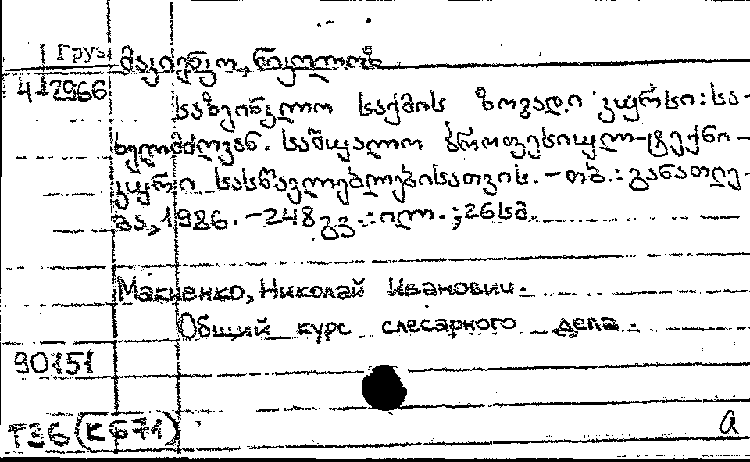 Груз მაკიენკო, ნიკოლოზ.
412966 საზეინკლო საქმის ზოგადი კურსი: სა-
ხელმძღვან. საშუალო პროფესიულ-ტექნი-
კური სასწავლებლებისათვის. - თბ.: განათლე-
ბა, 1986. - 248 გვ.: ილ.; 26 სმ.
Макиенко, Николай Иванович.
Общий курс слесарного дела.
90151
Т36 (К671) a